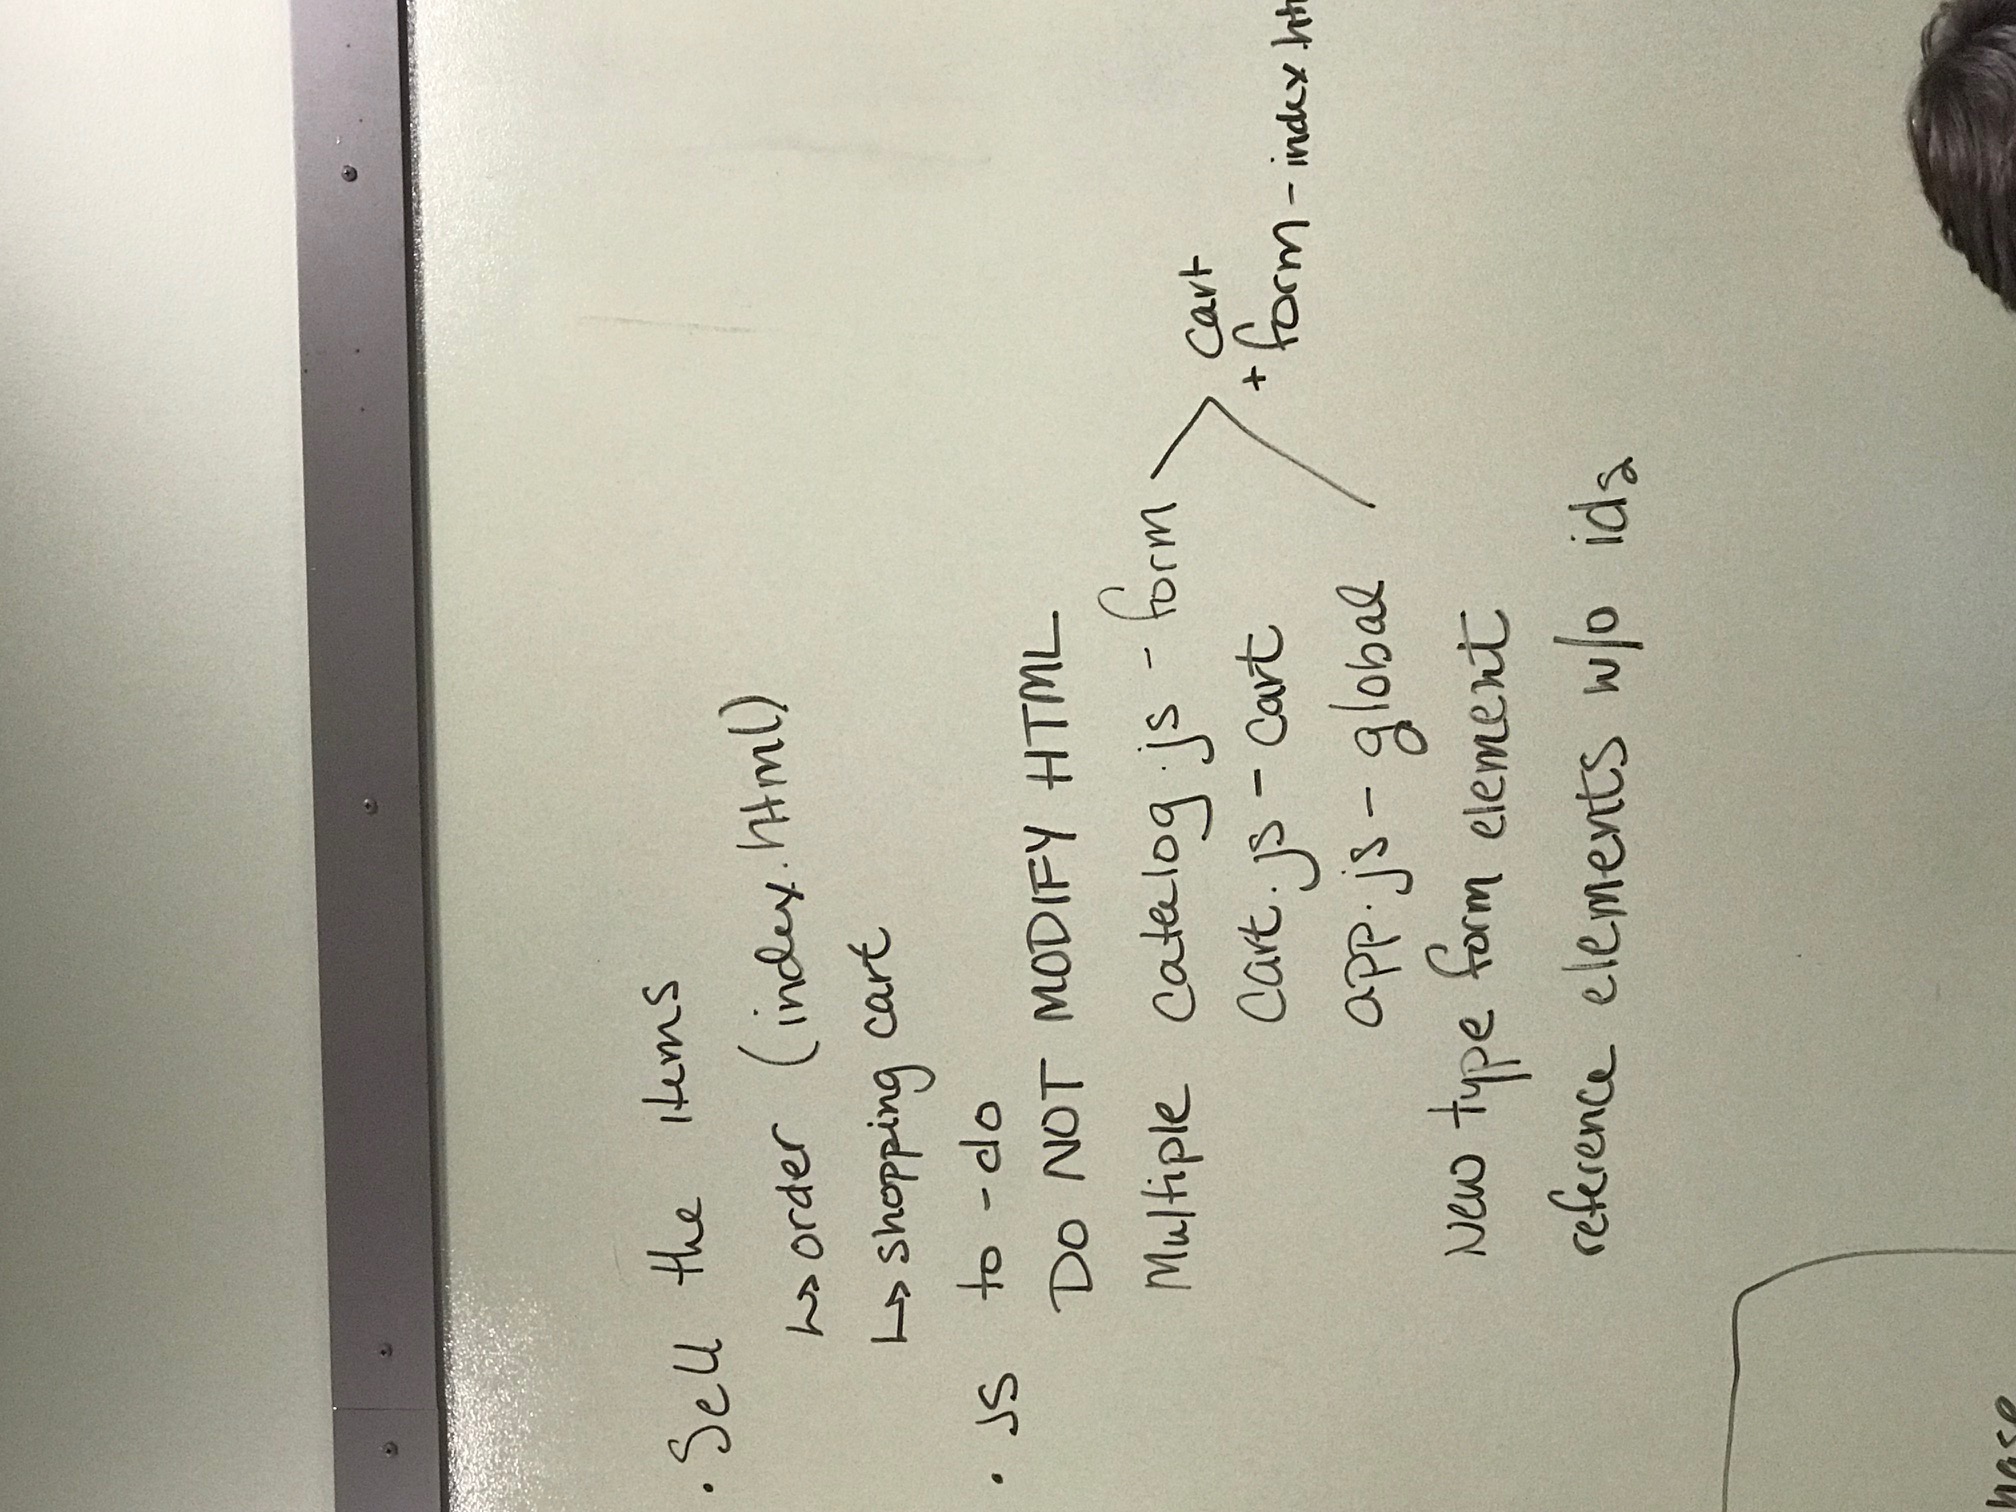 · Sell the items
↳ order (index.html)
↳ shopping cart
· JS to-do
DO NOT MODIFY HTML
Multiple catalog.js - form
cart.js - cart
app.js - global
cart
+ form - index.ht
New type form element
reference elements w/o ids